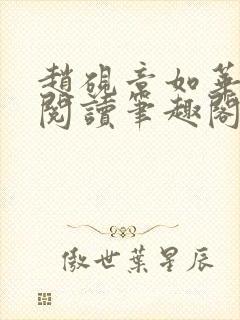 趙硯章如華
閱讀筆趣閣
傲世葉星辰